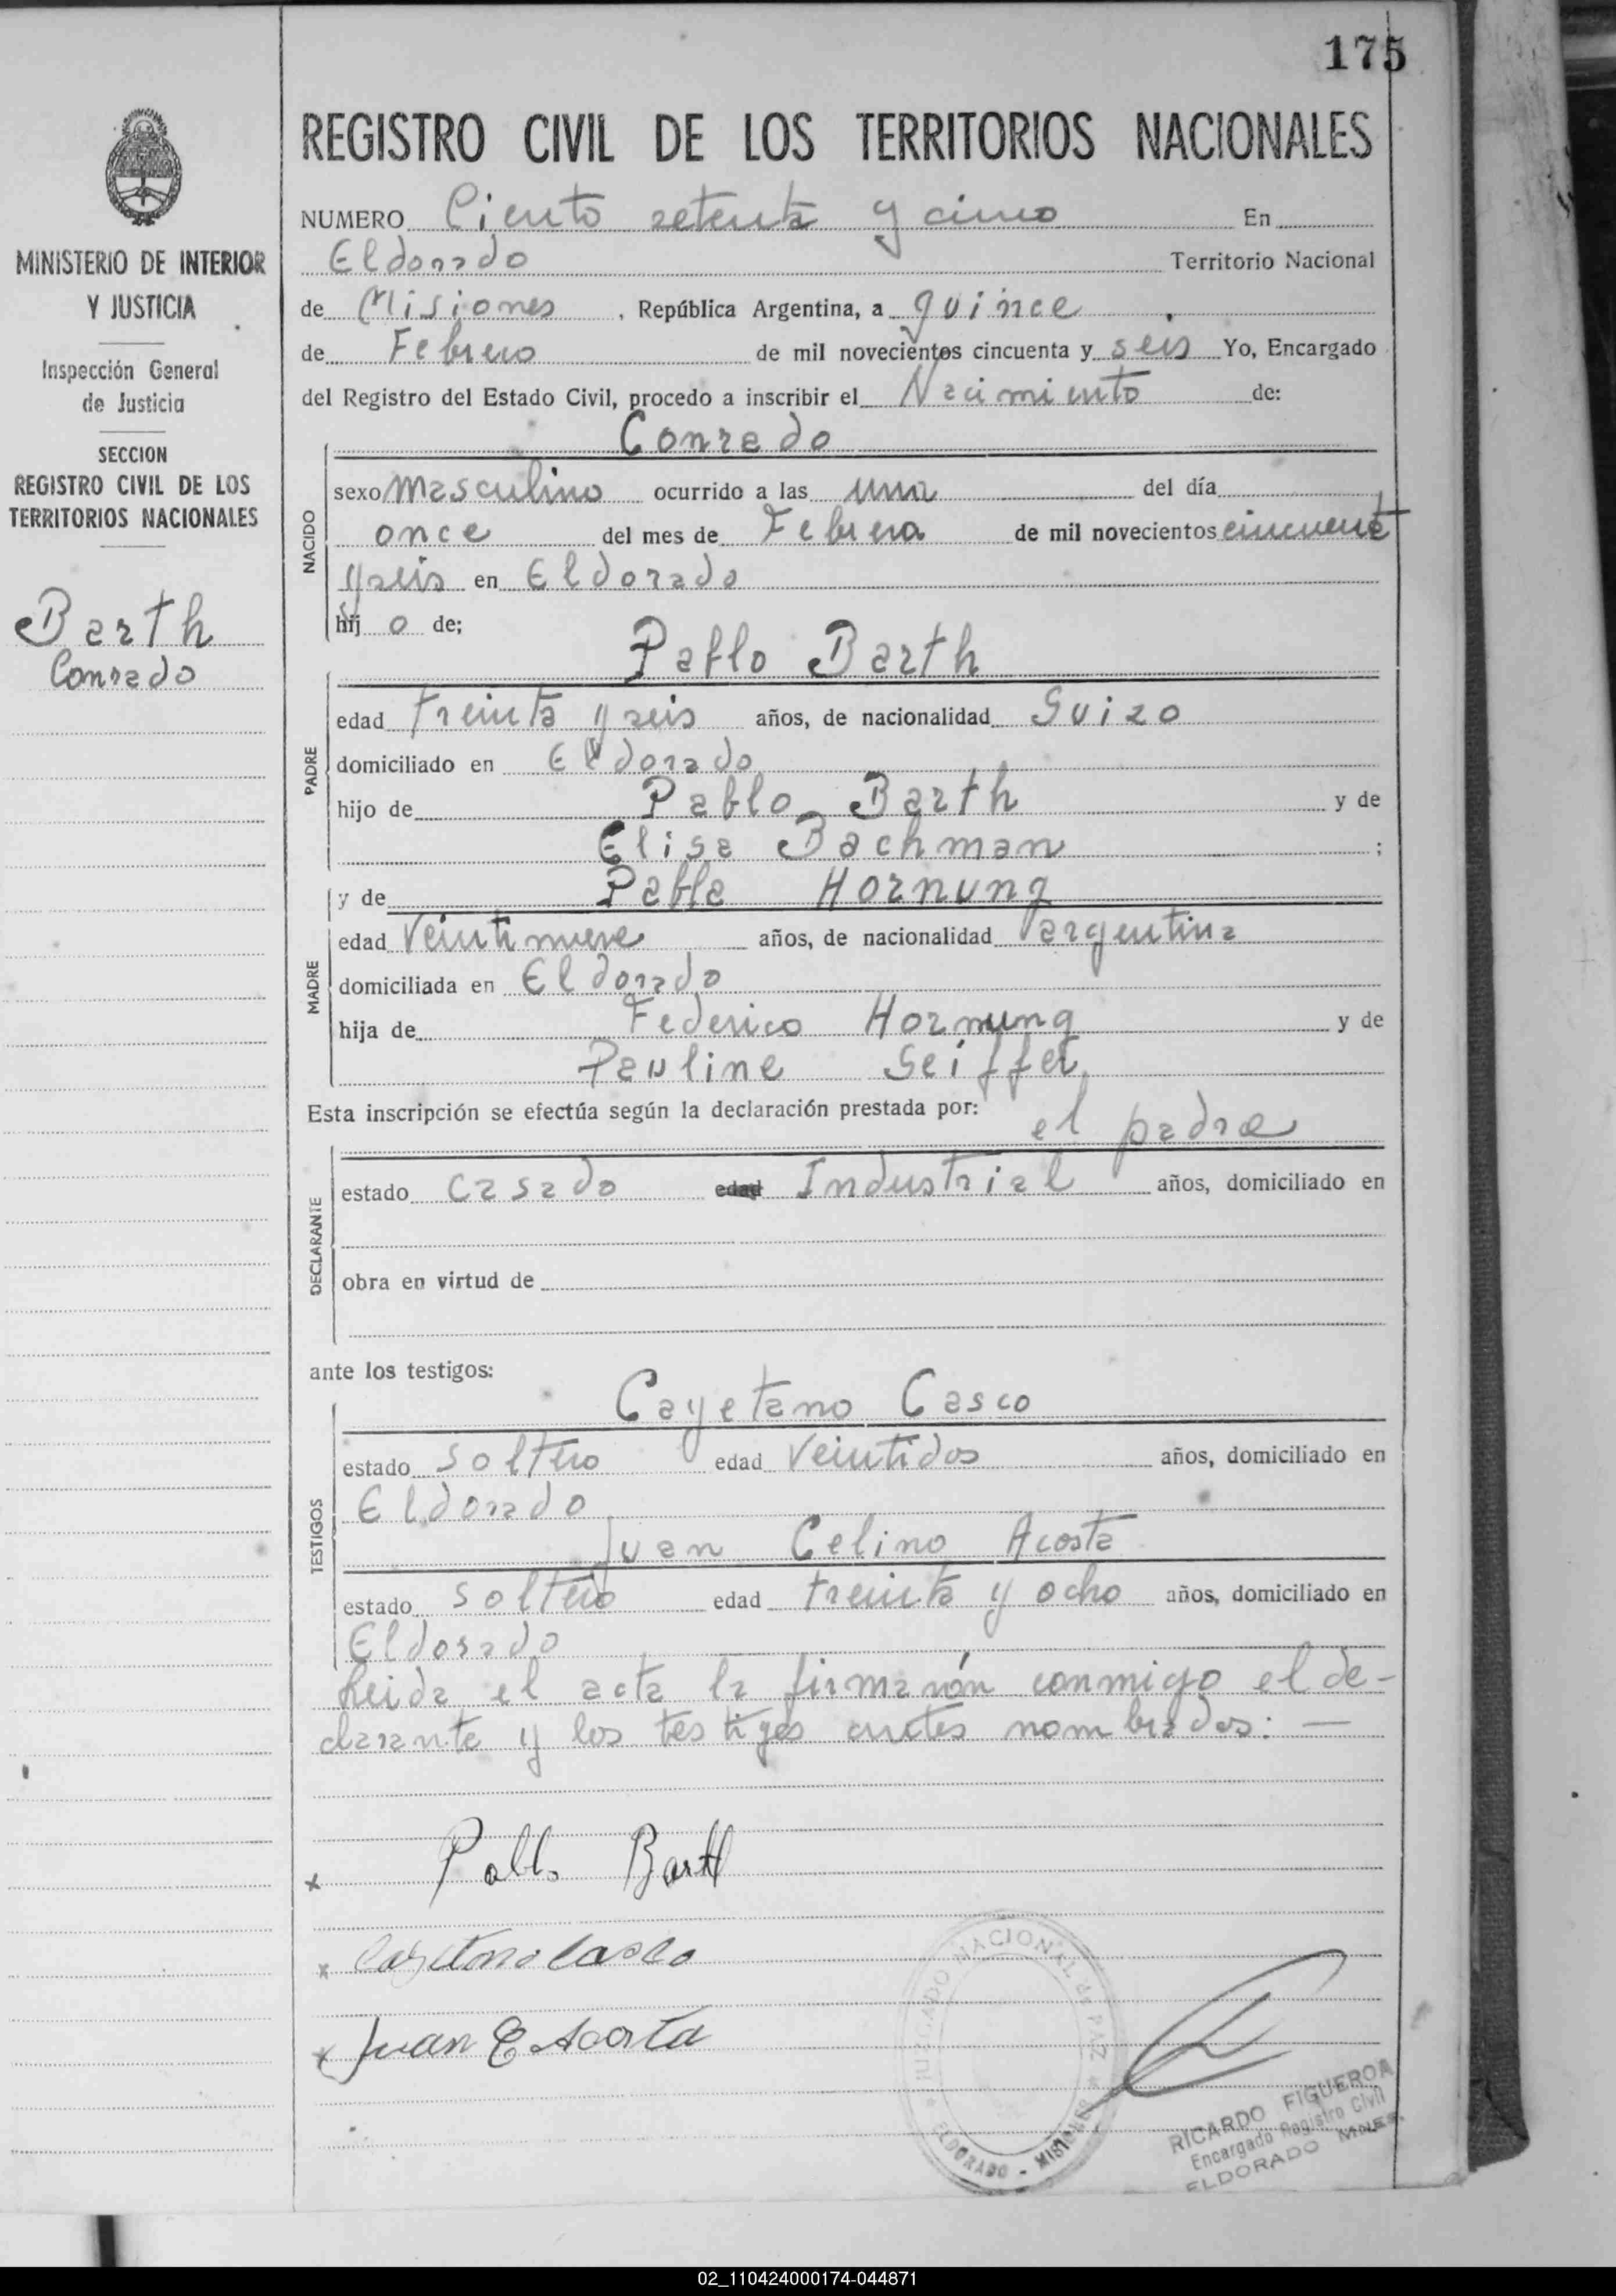 175
REGISTRO CIVIL DE LOS TERRITORIOS NACIONALES
MINISTERIO DE INTERIOR
Y JUSTICIA
Inspección General
de Justicia
SECCION
REGISTRO CIVIL DE LOS
TERRITORIOS NACIONALES
Barth
Conrado
NUMERO Ciento setenta y cinco En
Eldorado Territorio Nacional
de Misiones, República Argentina, a quince
de Febrero de mil novecientos cincuenta y seis Yo, Encargado
del Registro del Estado Civil, procedo a inscribir el Nacimiento de:
Conrado
NACIDO
sexo masculino ocurrido a las una del día
once del mes de Febrero de mil novecientos cincuent
y seis en Eldorado
hij o de;
Pablo Barth
PADRE
edad treinta y seis años, de nacionalidad Suizo
domiciliado en Eldorado
hijo de Pablo Barth y de
Elisa Bachman ;
y de Pabla Hornung
MADRE
edad Veintinueve años, de nacionalidad argentina
domiciliada en Eldorado
hija de Federico Hornung y de
Pauline Seiffer
Esta inscripción se efectúa según la declaración prestada por:
el padre
DECLARANTE
estado casado edad Industrial años, domiciliado en
obra en virtud de
ante los testigos:
Cayetano Casco
TESTIGOS
estado soltero edad Veintidos años, domiciliado en
Eldorado
Juan Celino Acosta
estado soltero edad treinta y ocho años, domiciliado en
Eldorado
Leida el acta la firmarón conmigo el de-
clarante y los testigos antes nombrados: —
x Pablo Barth
x Cayetano Casco
x Juan C Acosta
JUZGADO NACIONAL de PAZ
ELDORADO - MISIONES
RICARDO FIGUEROA
Encargado Registro Civil
ELDORADO MNES.
02_110424000174-044871